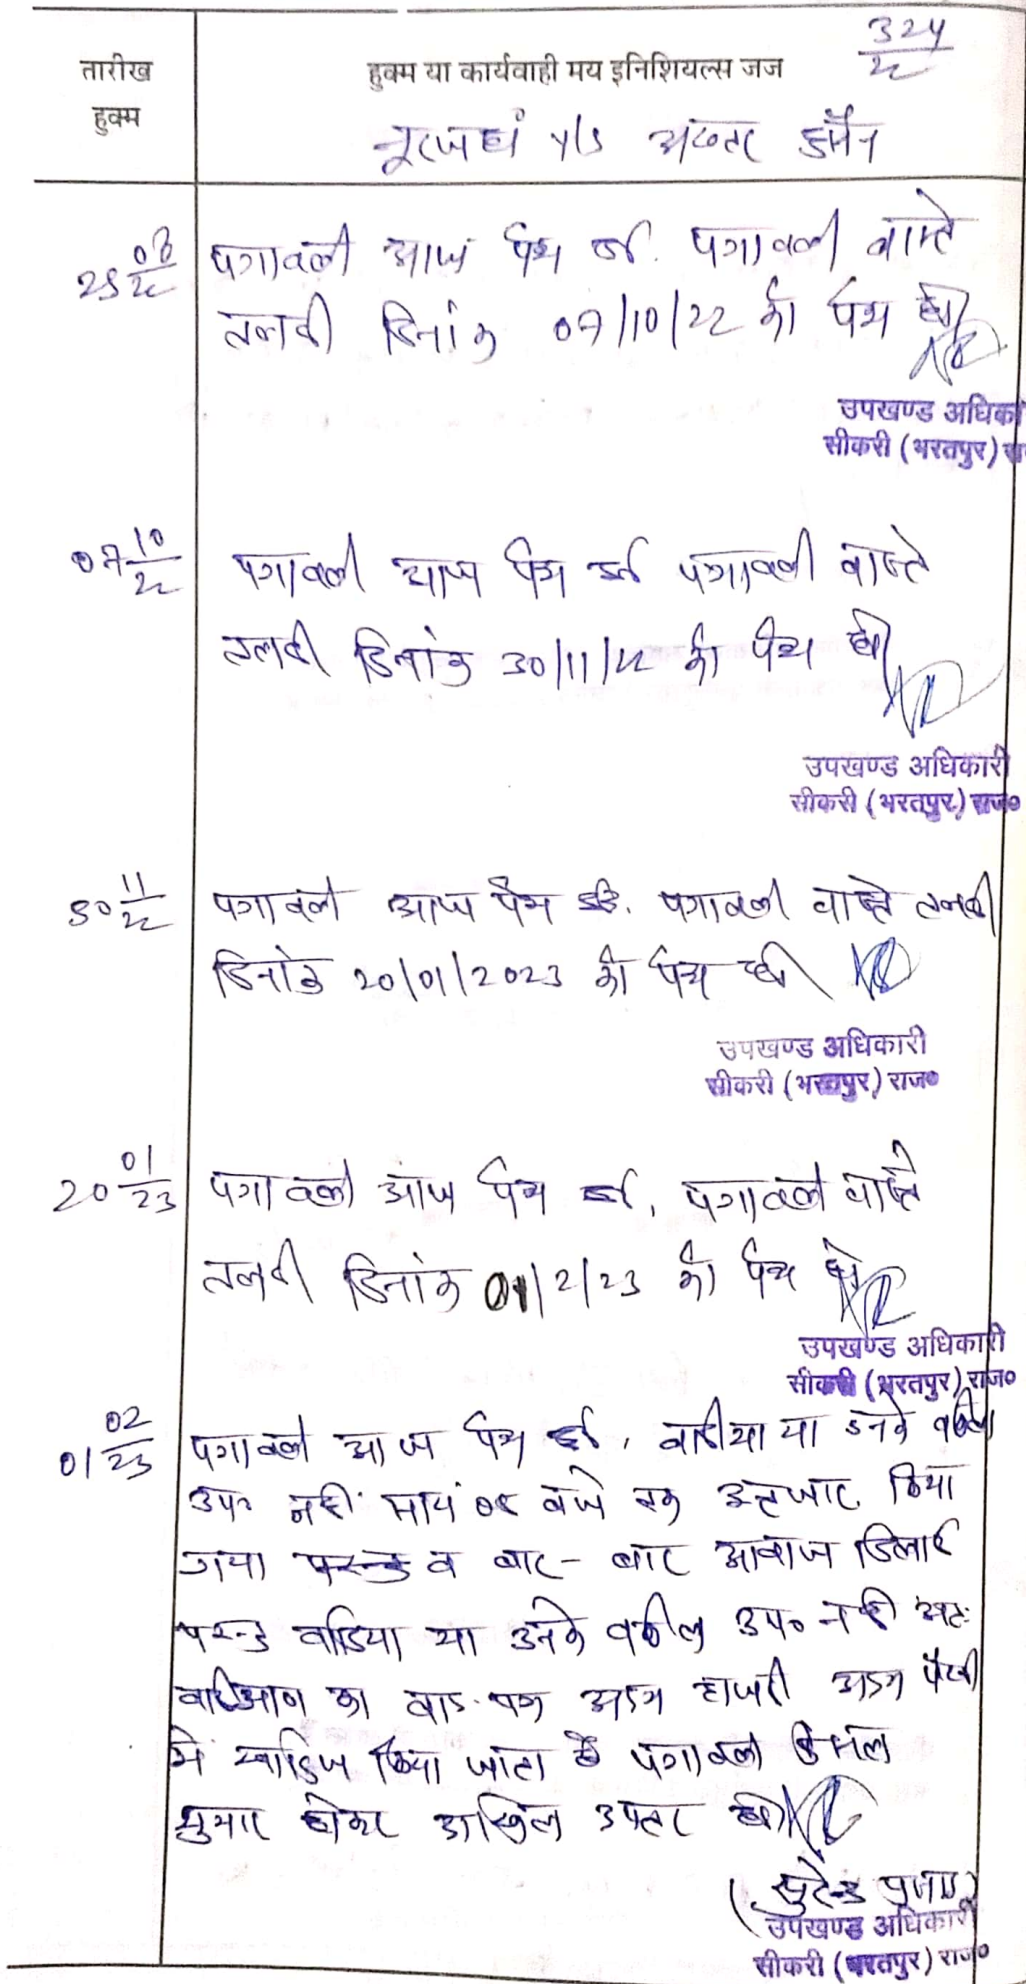 324
22
तारीख हुक्म
हुक्म या कार्यवाही मय इनिशियल्स जज
नूरजहां V/S अख्तर हुसैन
25 08/22
पत्रावली आज पेश हुई. पत्रावली वास्ते
तलवी दिनांक 07/10/22 को पेश हो
उपखण्ड अधिका
सीकरी (भरतपुर)
07 10/22
पत्रावली आज पेश हुई पत्रावली वास्ते
तलवी दिनांक 30/11/22 को पेश हो
उपखण्ड अधिकारी
सीकरी (भरतपुर) राज०
30 11/22
पत्रावली आज पेश हुई. पत्रावली वास्ते तलवी
दिनांक 20/01/2023 को पेश हो
उपखण्ड अधिकारी
सीकरी (भरतपुर) राज०
20 01/23
पत्रावली आज पेश हुई, पत्रावली वास्ते
तलवी दिनांक 01/2/23 को पेश हो
उपखण्ड अधिकारी
सीकरी (भरतपुर) राज०
01 02/23
पत्रावली आज पेश हुई, वादीया या उनके वकील
उप० नहीं. सायं 05 बजे तक इन्तजार किया
गया व बार-बार आवाज दिलाई
परन्तु वादिया या उनके वकील उप० नही अतः
वादीगण का वाद-पत्र अदम हाजरी अदम पैरवी
मे खारिज किया जाता है पत्रावली फैसल
सुमार होकर दाखिल दफ्तर हो
(सुरेन्द्र प्रसाद)
उपखण्ड अधिकारी
सीकरी (भरतपुर) राज०